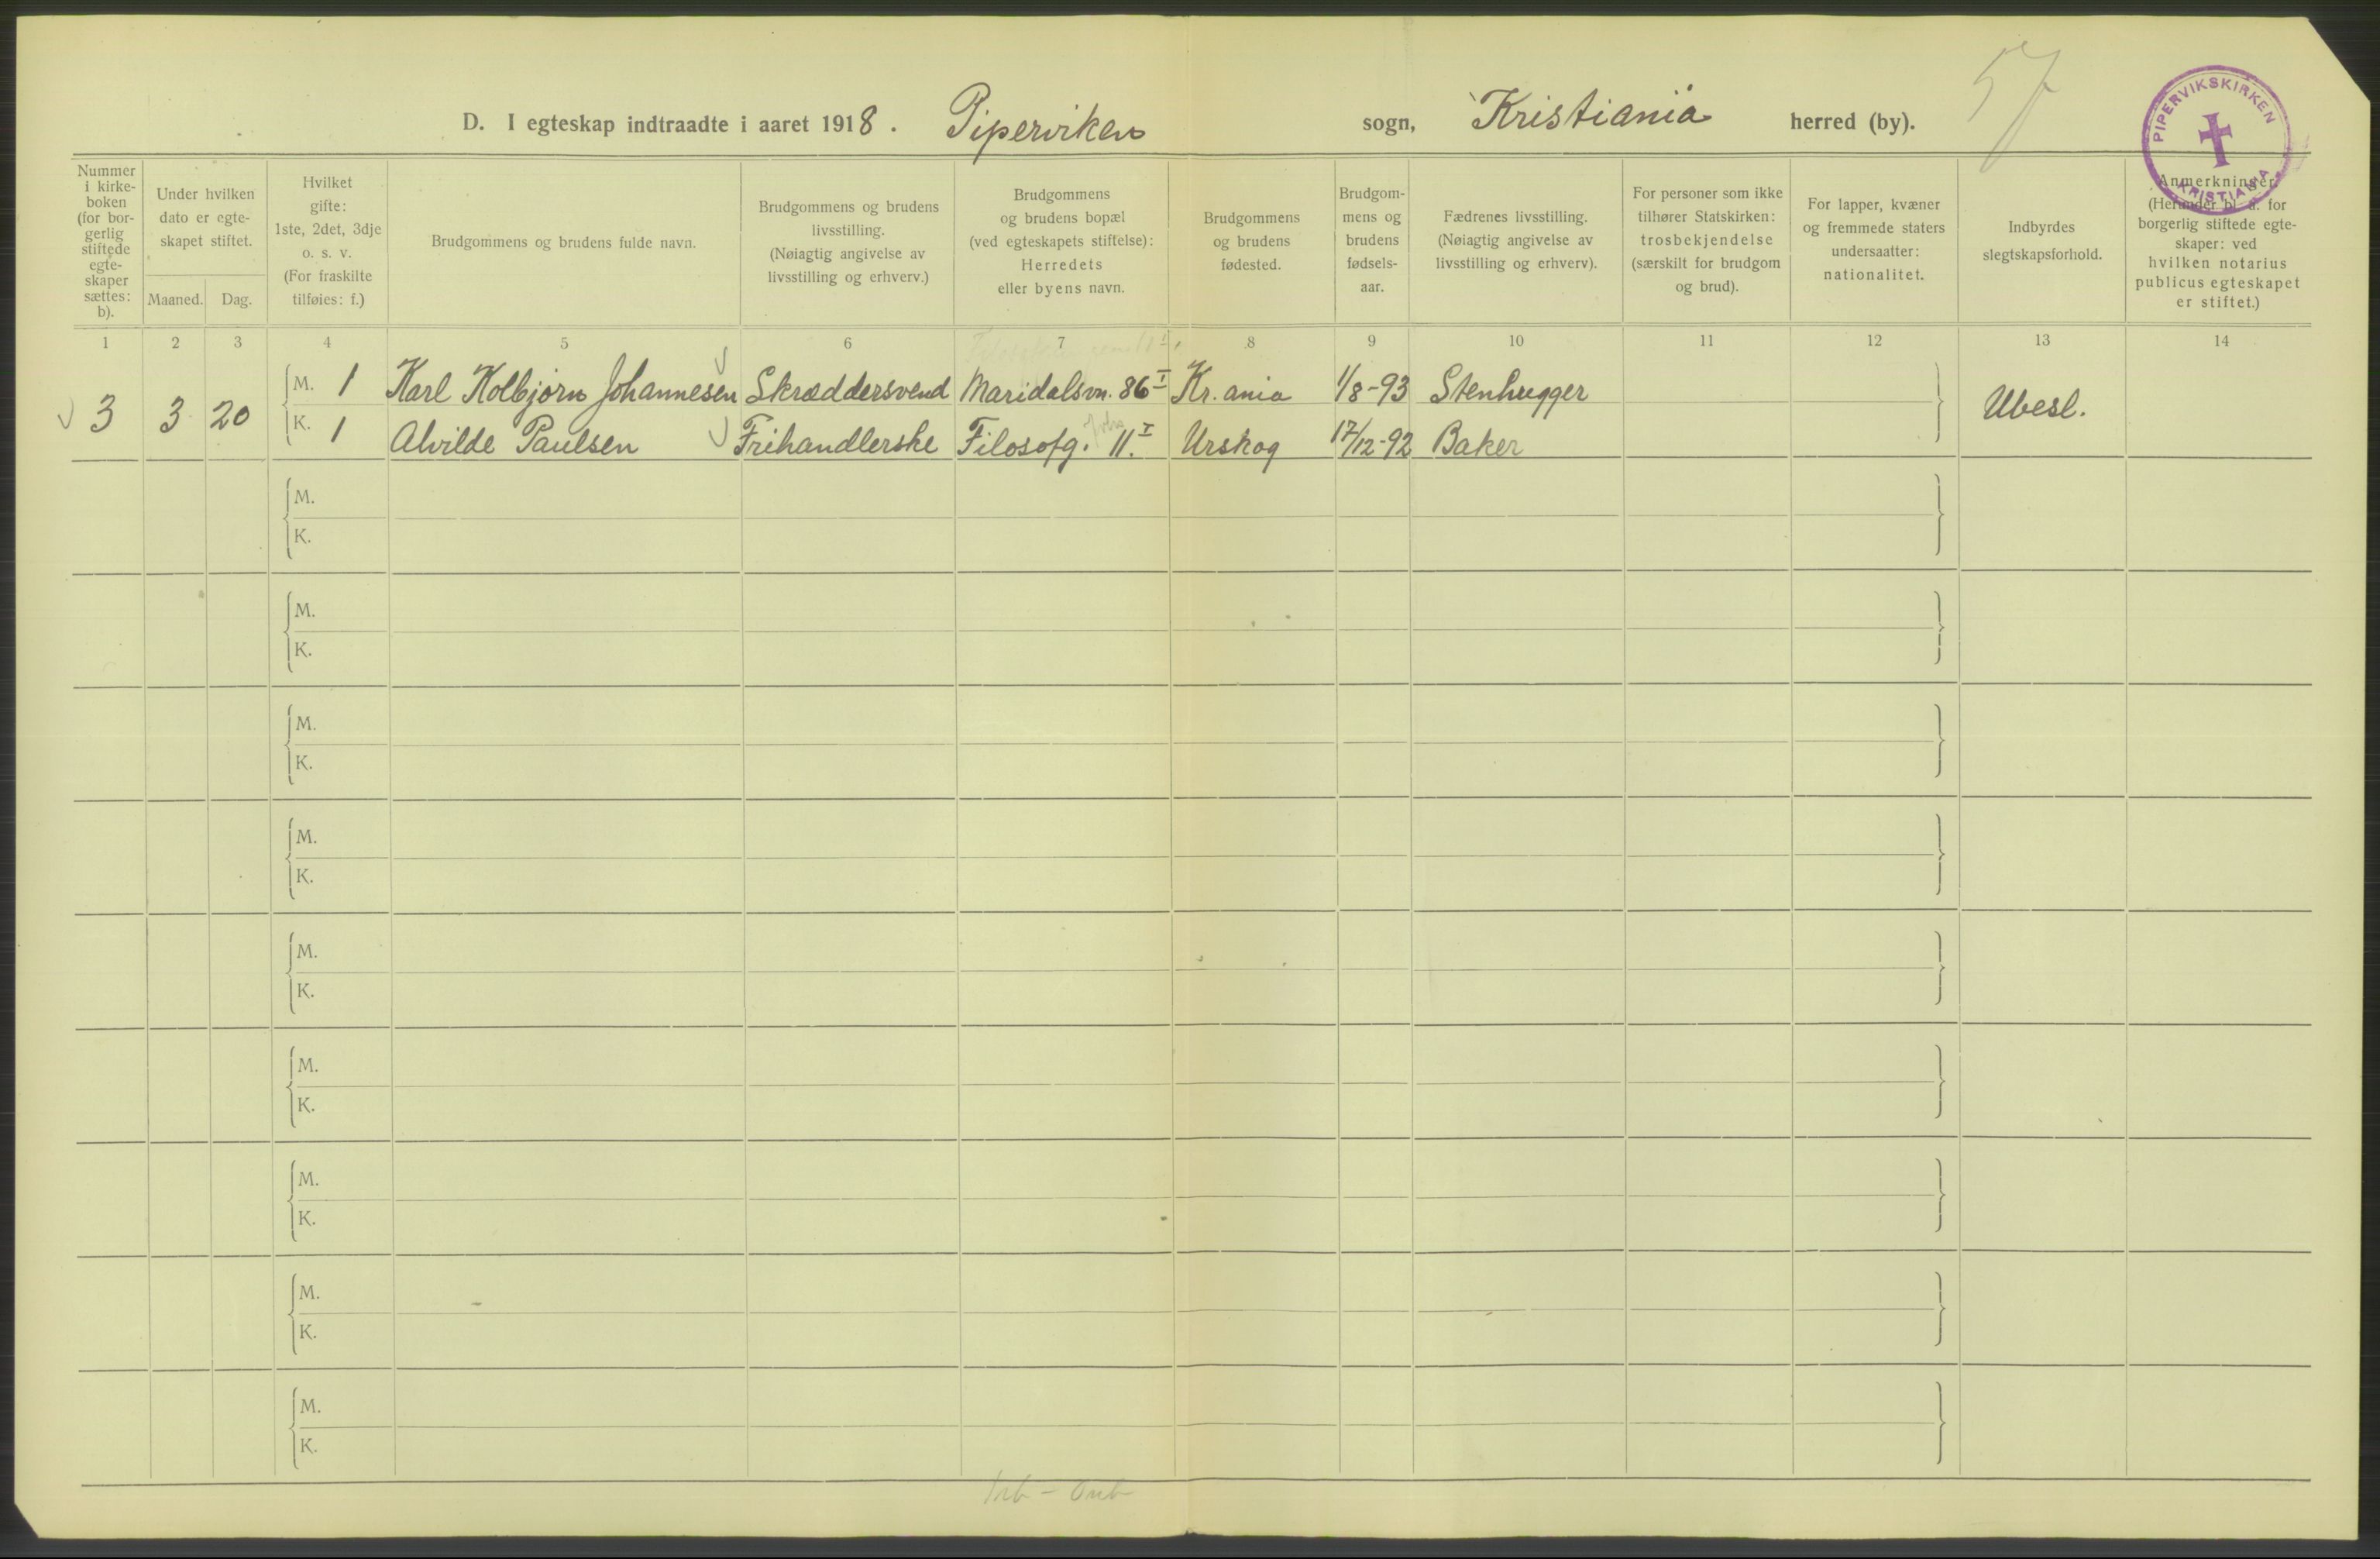 D. I egteskap indtraadte i aaret 1918. Piperviken sogn, Kristiania herred (by).
57
PIPERVIKSKIRKEN
KRISTIANIA
Nummer
i kirke-
boken
(for bor-
gerlig
stiftede
egte-
skaper
sættes:
b).
Under hvilken
dato er egte-
skapet stiftet.
Maaned. Dag.
Hvilket
gifte:
1ste, 2det, 3dje
o. s. v.
(For fraskilte
tilføies: f.)
Brudgommens og brudens fulde navn.
Brudgommens og brudens
livsstilling.
(Nøiagtig angivelse av
livsstilling og erhverv.)
Brudgommens
og brudens bopæl
(ved egteskapets stiftelse):
Herredets
eller byens navn.
Brudgommens
og brudens
fødested.
Brudgom-
mens og
brudens
fødsels-
aar.
Fædrenes livsstilling.
(Nøiagtig angivelse av
livsstilling og erhverv).
For personer som ikke
tilhører Statskirken:
trosbekjendelse
(særskilt for brudgom
og brud).
For lapper, kvæner
og fremmede staters
undersaatter:
nationalitet.
Indbyrdes
slegtskapsforhold.
Anmerkninger.
(Herunder bl. a. for
borgerlig stiftede egte-
skaper: ved
hvilken notarius
publicus egteskapet
er stiftet.)
1 2 3 4 5 6 7 8 9 10 11 12 13 14
M. 1 Karl Kolbjørn Johannesen Skræddersvend Maridalsvn. 86 I Kr.ania 1/8-93 Stenhugger
3 3 20 Ubesl.
K. 1 Alvilde Paulsen Frihandlerske Filosofg. 11. I Urskog 17/12-92 Baker
M.
K.
M.
K.
M.
K.
M.
K.
M.
K.
M.
K.
M.
K.
M.
K.
M.
K.